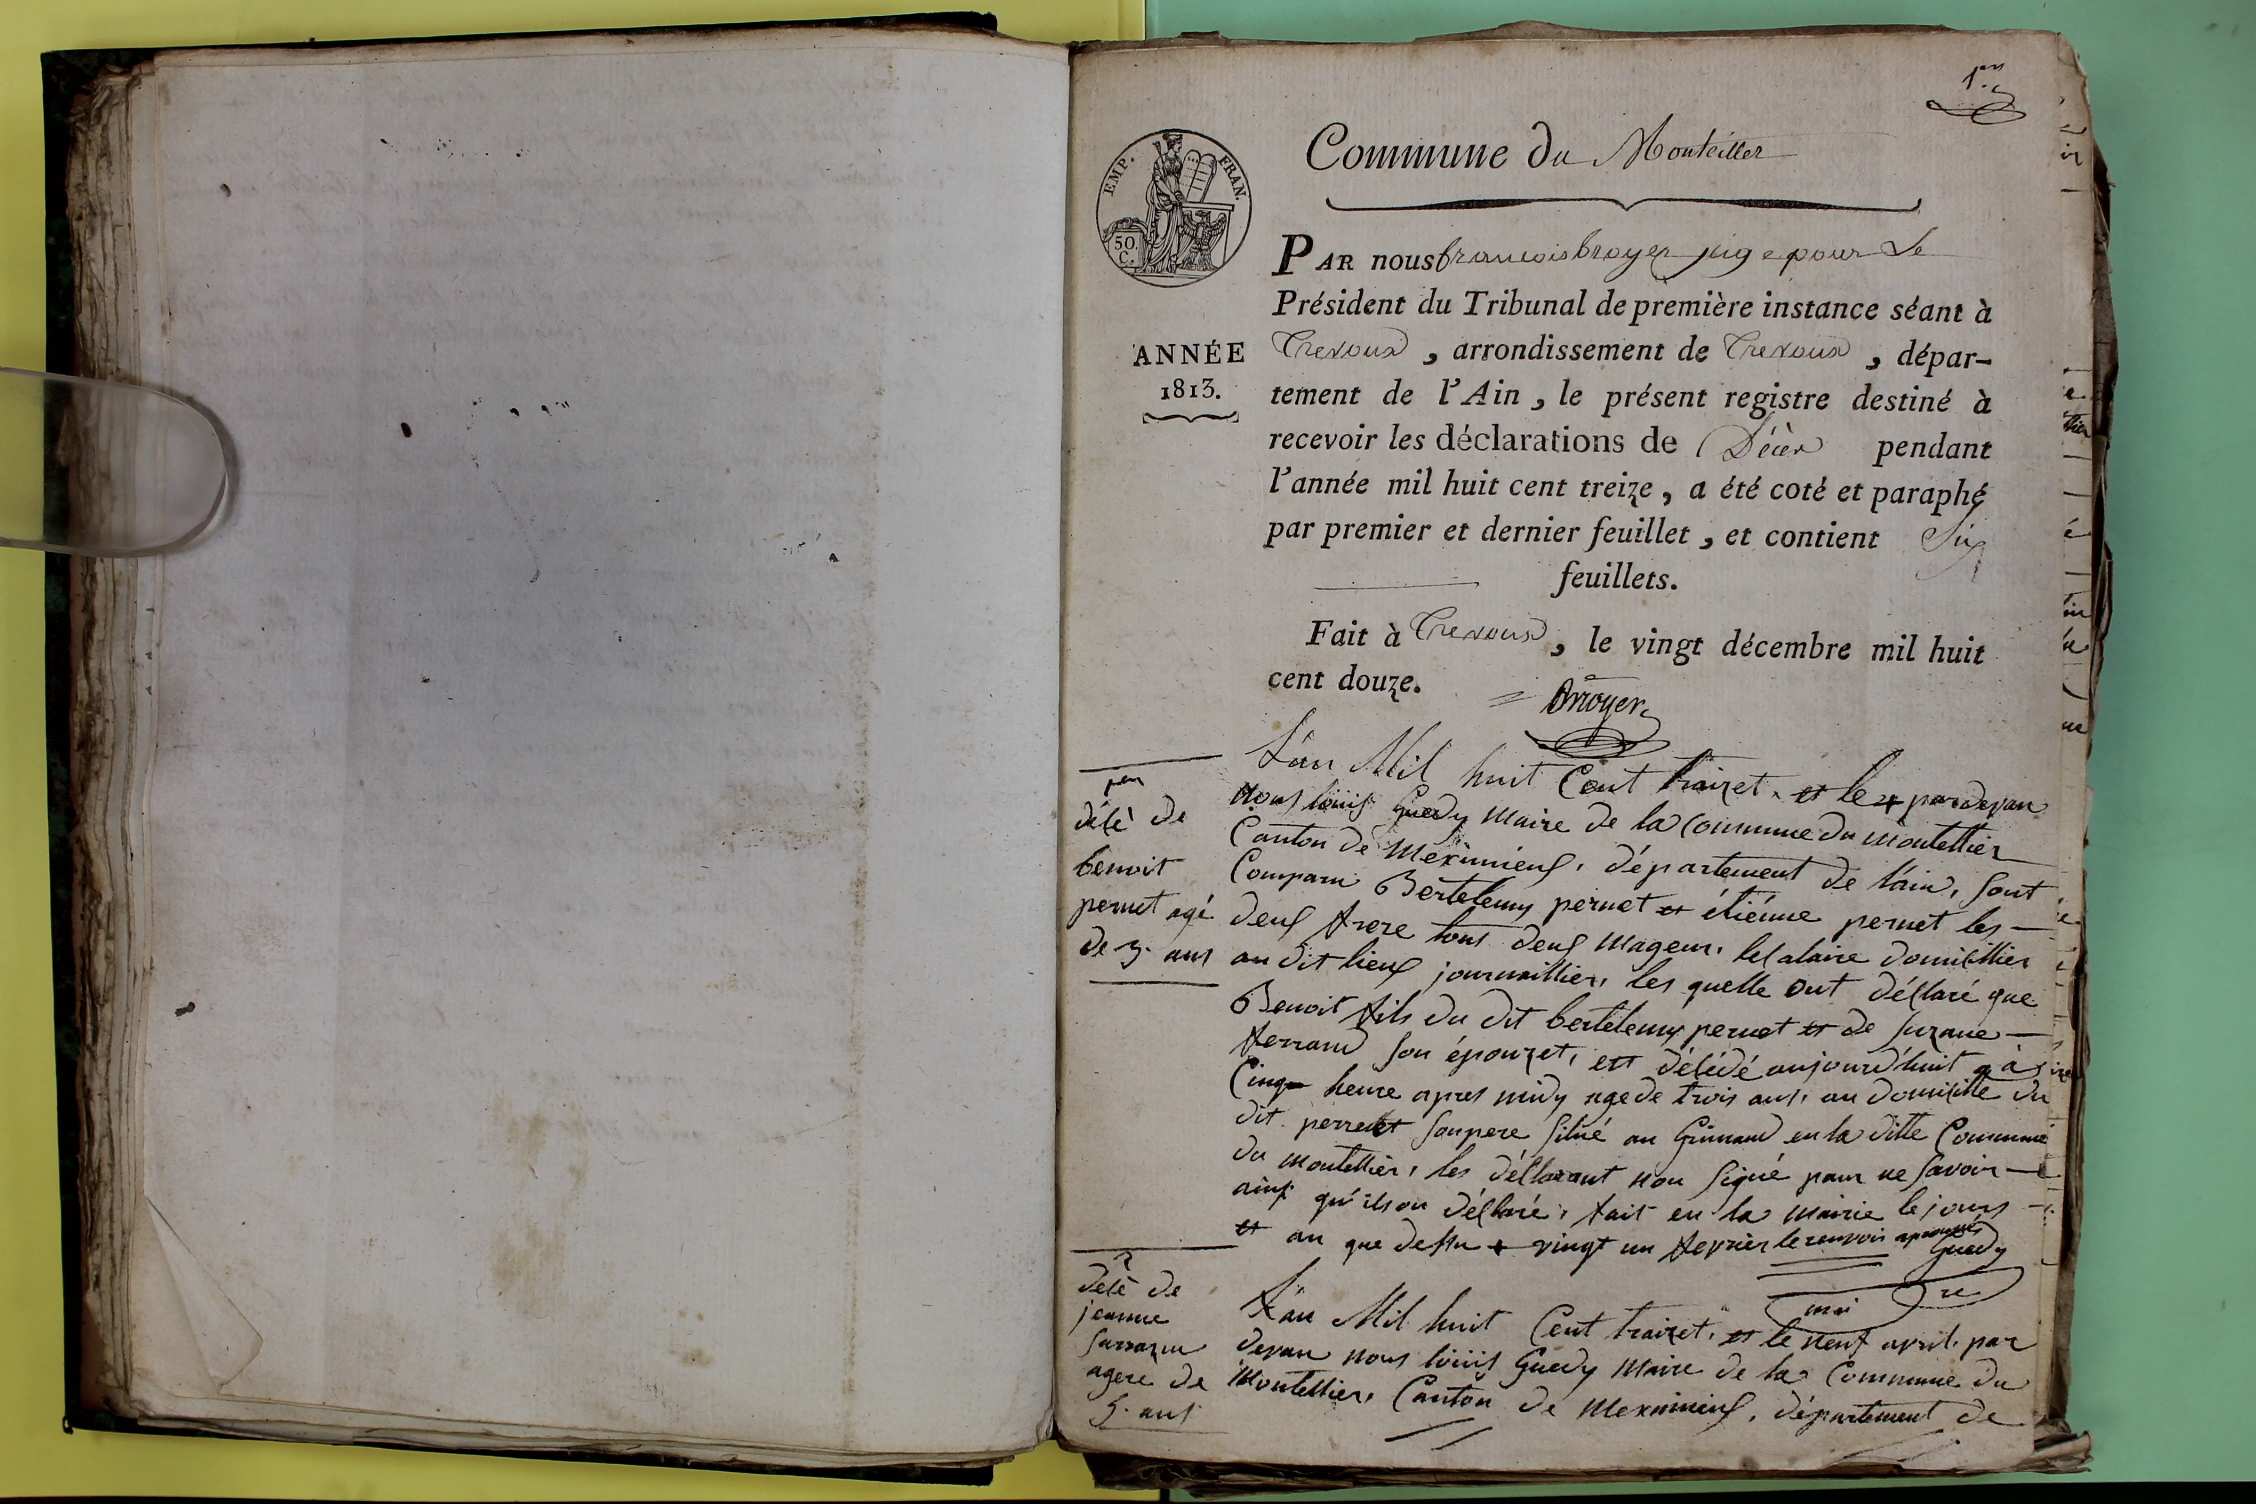 1.er
Commune du Monteiller
EMP. FRAN.
50.
C.
PAR nous francois broyer juge pour Le
Président du Tribunal de première instance séant à
Trevoux, arrondissement de Trevoux, dépar-
tement de l'Ain, le présent registre destiné à
recevoir les déclarations de Décès pendant
l'année mil huit cent treize, a été coté et paraphé
par premier et dernier feuillet, et contient Six
feuillets.
Fait à Trevoux, le vingt décembre mil huit
cent douze.
Broyer
ANNÉE
1813.
décè de
benoit
pernet agé
de 3. ans
L'an Mil huit Cent traizet. et le + pardevan
nous louis Guedy maire de la commune du montellier
Canton de meximieux, département de l'ain, sont
Comparu Bertelemy pernet et étiénne pernet les —
deux frere tous deux mageur, les alaire domicillier
au dit lieux journaillier, les quelle ont déclaré que
Benoit fils du dit bertelemy pernet et de suzane —
ferrand son épouzet, est décédé aujourd'huit à
Cinq heure apres midy age de trois ans, au domicille du
dit pernet son pere situé au Grinand en la ditte Commune
du montellier, les déclarant non signé pour ne savoir —
ainsi qu'ils on déclaré, fait en la mairie le jours —
et an que dessu + vingt un fevrier le renvoi aprouvés
Guedy
mai re
2
décè de
jeanne
sarrazin
ageré de
5. ans
L'an Mil huit Cent traizet, et le neuf avril. par
devan nous louis Guedy maire de la Commune du
Montellier, Canton de meximieux, département de